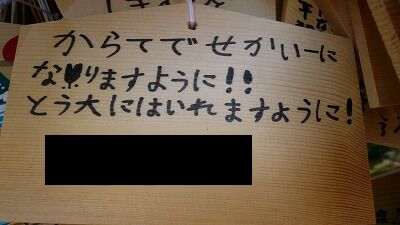 からてでせかい一に
なりますように!!
とう大にはいれますように!